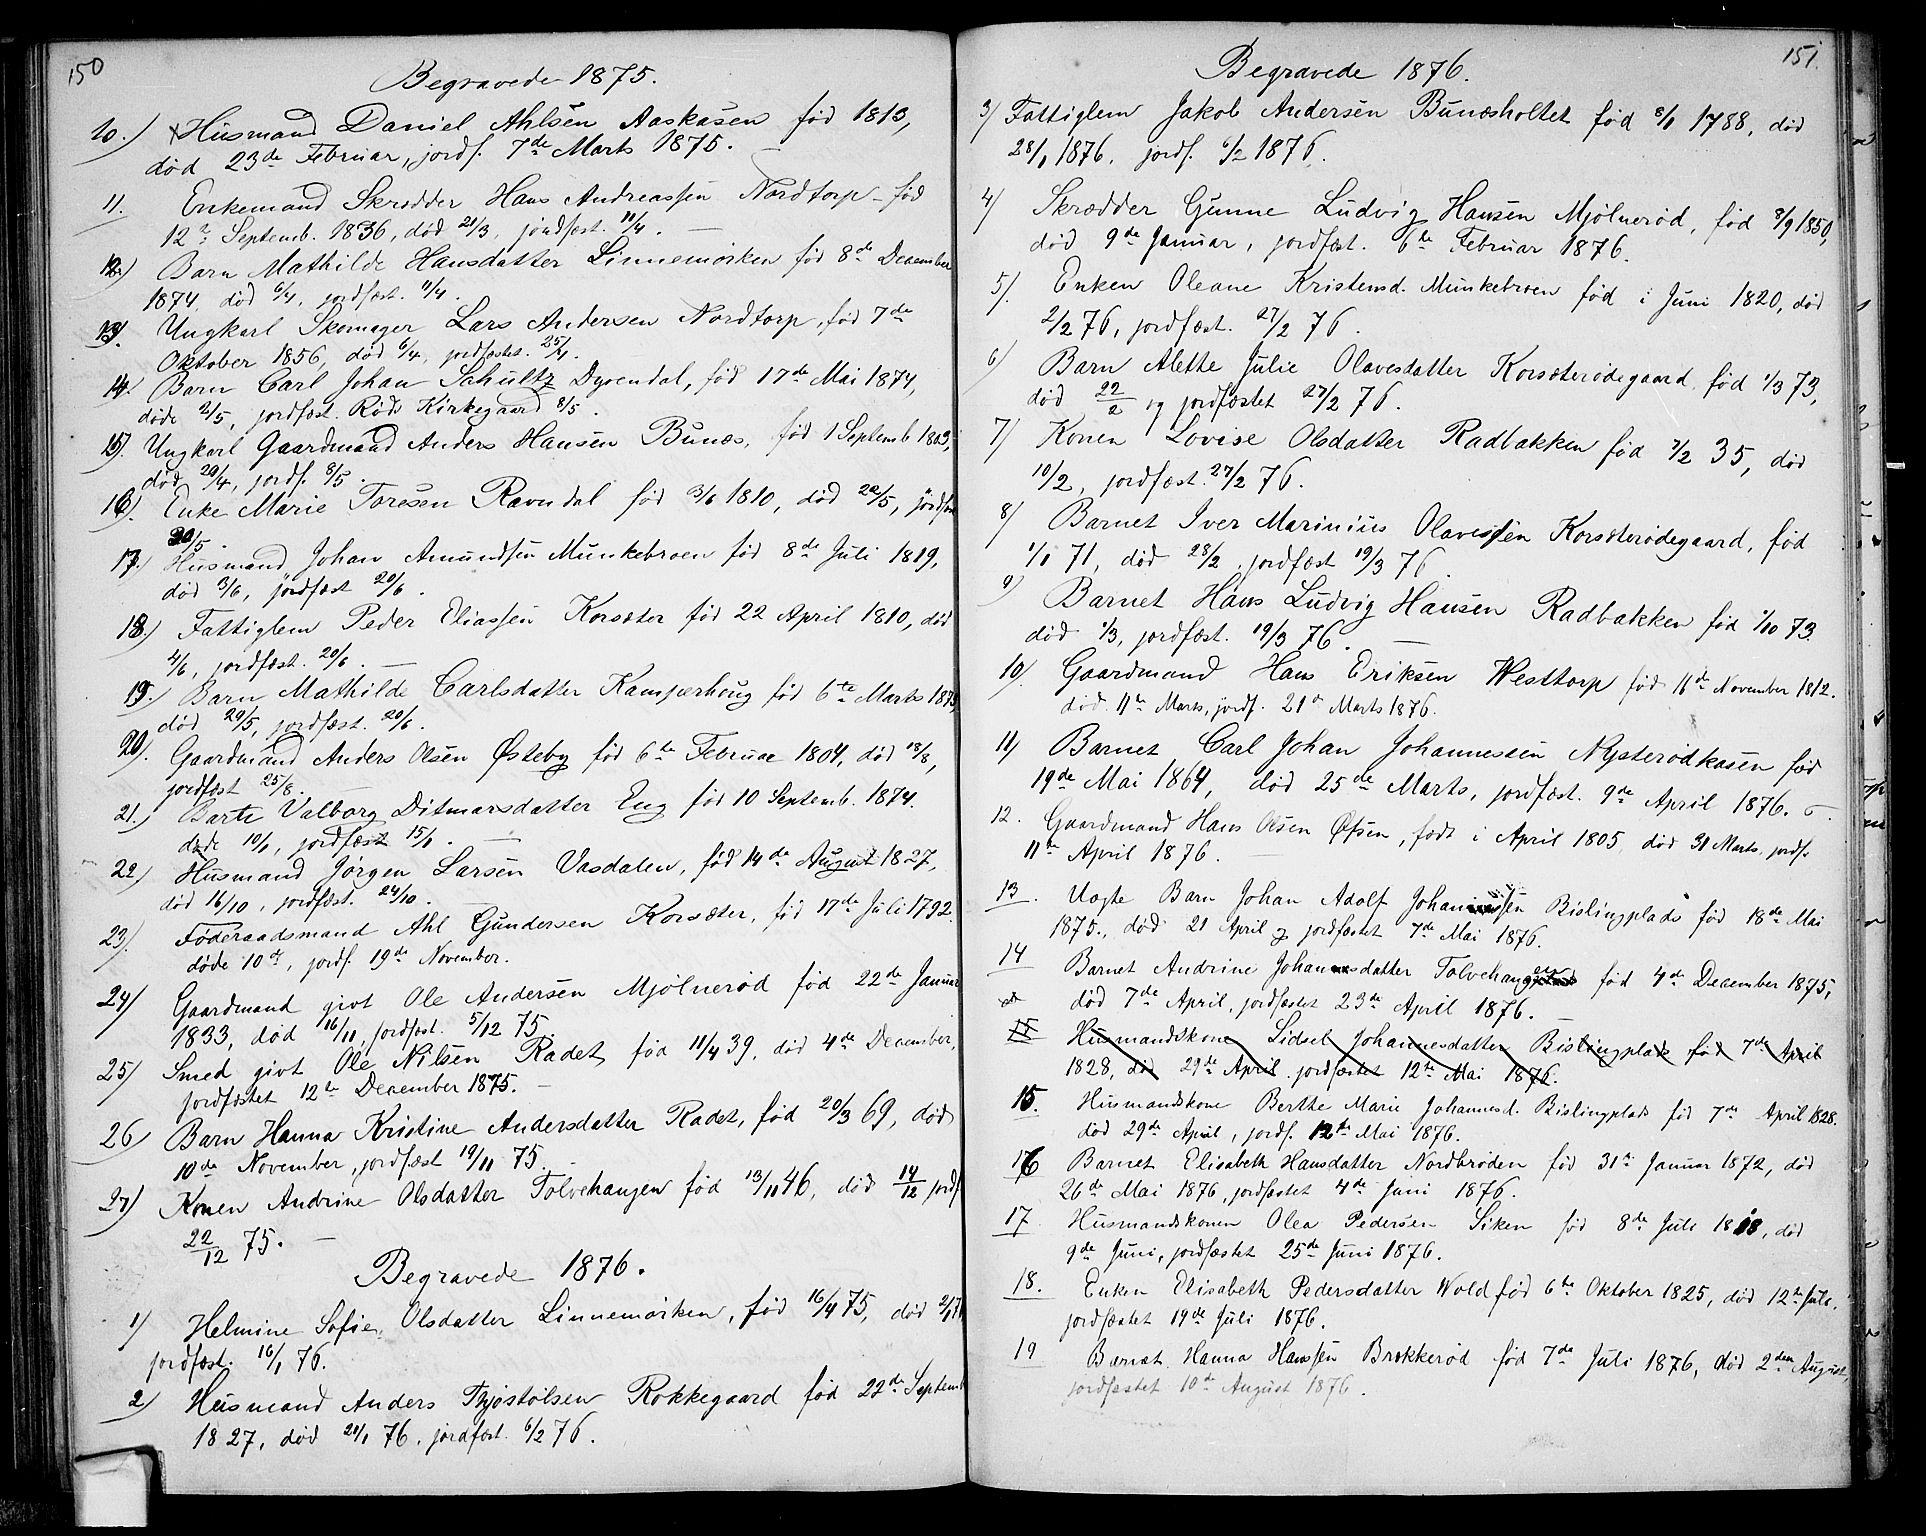 150
Begravede 1875.
10.) Husmand Daniel Ahlsen Aaskasen fød 1813,
død 23de Februar, jordf. 7de Marts 1875.
11. Enkemand Skrædder Hans Andreassen Nordtorp fød
12te Septemb. 1836, død 21/3, jordfæst. 11/4.
12.) Barn Mathilde Hansdatter Linnemørken fød 8de December
1874, død 6/4, jordfæst. 11/4.
13). Ungkarl Skomager Lars Andersen Nordtorp, fød 7de
Oktober 1856, død 6/4, jordfæstet. 25/4.
14. Barn Carl Johan Schultz Dyrendal, fød 17de Mai 1874,
døde 2/5, jordfæst. Røds Kirkegaard 8/5.
15). Ungkarl Gaardmand Anders Hansen Bunæs, fød 1 Septemb 1803,
død 29/4, jordf. 8/5.
16). Enke Marie Toresen Ravndal fød 3/6 1810, død 22/5, jordfæst
30/5.
17.) Husmand Johan Amundsen Munkebroen fød 8de Juli 1819,
død 3/6, jordfæst 20/6.
18.) Fattiglem Peder Eliassen Korsæter fød 22 April 1810, død
4/6, jordfæst. 20/6.
19.) Barn Mathilde Carlsdatter Kamperhoug fød 6te Marts 1875,
død 29/5, jordfæst. 20/6.
20). Gaardmand Anders Olsen Østeby fød 6te Februar 1804, død 18/8,
jordfæst 25/8.
21.) Valborg Ditmarsdatter Eng fød 10 Septemb. 1874.
døde 10/1, jordfæst 15/1.
22) Husmand Jørgen Larsen Vasdalen, fød 14de August 1827,
død 16/10, jordfæst. 24/10.
23). Føderaadsmand Ahl Gundersen Korsæter, fød 17de Juli 1792.
døde 10de, jordf. 19de November.
24) Gaardmand givt Ole Andersen Mjølnerød fød 22de Januar
1833, død 16/11, jordfæst. 5/12 75.
25) Smed givt Ole Nilsen Radet, fød 11/4 39, død 4de December,
jordfæstet 12te December 1875.
26) Barn Hanna Kristine Andersdatter Radet, fød 20/3 69, død
10de November, jordfæst 19/11 75.
27) Konen Andrine Olsdatter Tolvehaugen fød 13/11 46, død 14/12 jordf
22/12 75.
Begravede 1876.
1) Helmine Sofie Olsdatter Linnemørken, fød 16/4 75, død 2/1 76
jordfæst. 16/1 76.
2) Husmand Anders Thjostolsen Rokkegaard fød 22de Septemb
1827, død 20/1 76, jordfæst. 6/2 76.
151.
Begravede 1876.
3) Fattiglem Jakob Andersen Bunæsholtet fød 8/1 1788, død
28/1 1876, jordf. 6/2 1876.
4) Skrædder Gunne Ludvig Hansen Mjølnerød, fød 8/9 1850,
død 9de Januar, jordfæst. 6te Februar 1876.
5). Enken Oleane Kristensd. Munkebroen fød i Juni 1820, død
2/2 76, jordfæst. 27/2 76.
6) Barn Alette Julie Olavesdatter Korsæterødegaard fød 1/3 73,
død 22/2 og jordfæstet 27/2 76.
7) Konen Lovise Olsdatter Radbakken fød 7/2 35, død
10/2, jordfæst. 27/2 76.
8) Barnet Iver Marinius Olavesen Korsæterødegaard, fød
1/1 71, død 28/2, jordfæst 19/3 76.
9) Barnet Hans Ludvig Hansen Radbakken fød 1/10 73.
død 1/3, jordfæst. 19/3 76.
10). Gaardmand Hans Eriksen Westtorp fød 16de November 1812.
død 11te Marts, jordf. 21de Marts 1876.
11) Barnet Carl Johan Johannessen Nysterødkasen fød
19de Mai 1864, død 25de Marts, jordfæst. 9de April 1876.
12. Gaardmand Hans Olsen Øfsen, født i April 1805, død 31 Marts, jordf.
11te April 1876.
13. Uægte Barn Johan Adolf Johannsen Bislingplads fød 18de Mai
1875., død 21 April og jordfæstet 7de Mai 1876.
14 Barnet Andrine Johannsdatter Tolvehaugen fød 4de December 1875,
død 7de April, jordfæstet 23de April 1876.
15 Husmandskone Sidsel Johannesdatter Bislingplads fød 7de April
1828, død 29de April jordfæstet 12te Mai 1876.
15. Husmandskone Berthe Marie Johannesd. Bislingplads fød 7de April 1828.
død 29de April, jordf. 12te Mai 1876.
16 Barnet Elisabeth Hansdatter Nordbrøden fød 31te Januar 1872, død
26de Mai 1876, jordfæstet 4de Juni 1876.
17 Husmandskonen Olea Pedersen Siken fød 8de Juli 1818, død
9de Juni, jordfæstet 25de Juni 1876.
18. Enken Elisabeth Pedersdatter Wold fød 6te Oktober 1825, død 12te Juli,
jordfæstet 19de Juli 1876.
19 Barnet Hanna Hanssen Brekkerød fød 7de Juli 1876, død 2den August,
jordfæstet 10de August 1876.